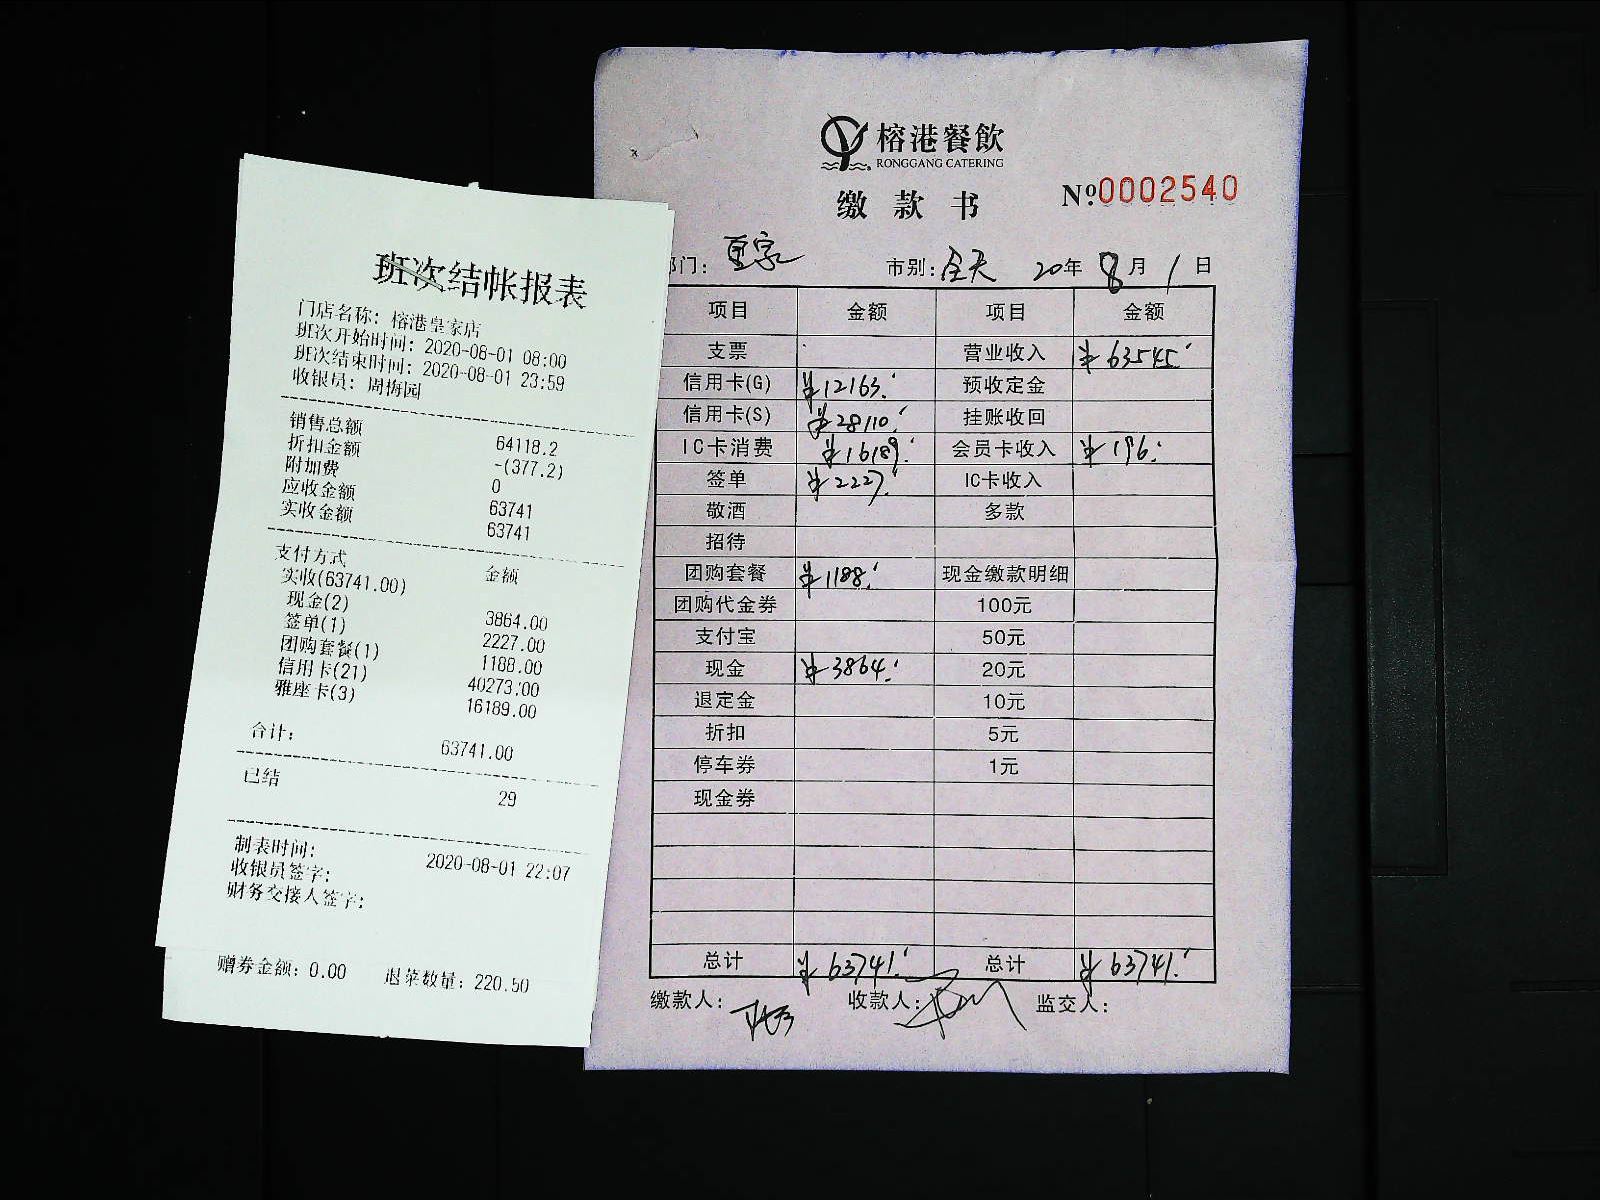 班次结帐报表
门店名称：榕港皇家店
班次开始时间：2020-08-01 08:00
班次结束时间：2020-08-01 23:59
收银员：周梅园
销售总额 64118.2
折扣金额 -(377.2)
附加费 0
应收金额 63741
实收金额 63741
支付方式 金额
实收(63741.00)
现金(2) 3864.00
签单(1) 2227.00
团购套餐(1) 1188.00
信用卡(21) 40273.00
雅座卡(3) 16189.00
合计： 63741.00
已结 29
制表时间： 2020-08-01 22:07
收银员签字：
财务交接人签字：
赠券金额：0.00 退菜数量：220.50
榕港餐飲
RONGGANG CATERING
缴款书 Nº0002540
部门：皇家 市别：全天 20年8月1日
项目 金额 项目 金额
支票 营业收入 ¥63545
信用卡(G) ¥12163 预收定金
信用卡(S) ¥28110 挂账收回
IC卡消费 ¥16189 会员卡收入 ¥196
签单 ¥2227 IC卡收入
敬酒 多款
招待
团购套餐 ¥1188 现金缴款明细
团购代金券 100元
支付宝 50元
现金 ¥3864 20元
退定金 10元
折扣 5元
停车券 1元
现金券
总计 ¥63741 总计 ¥63741
缴款人： 收款人： 监交人：